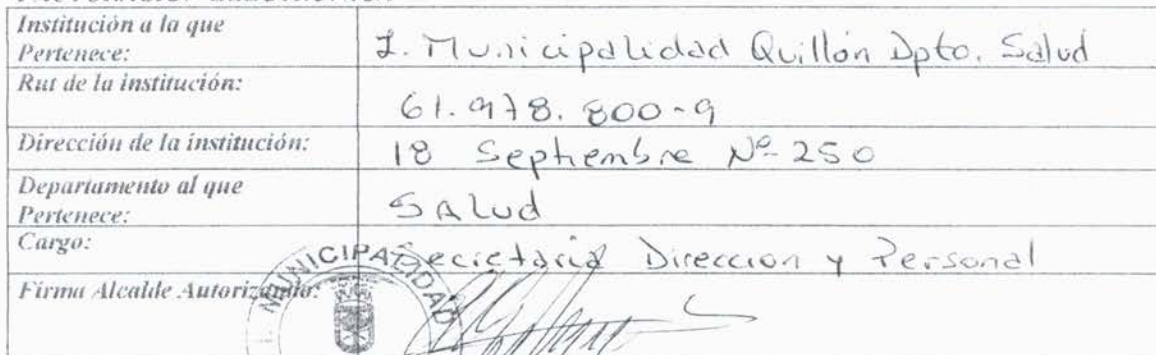 Institución a la que
Pertenece:
I. Municipalidad Quillón Dpto. Salud
Rut de la institución:
61.978.800-9
Dirección de la institución:
18 Septiembre Nº 250
Departamento al que
Pertenece:
Salud
Cargo:
Secretaria Direccion y Personal
Firma Alcalde Autorizando:
I. MUNICIPALIDAD